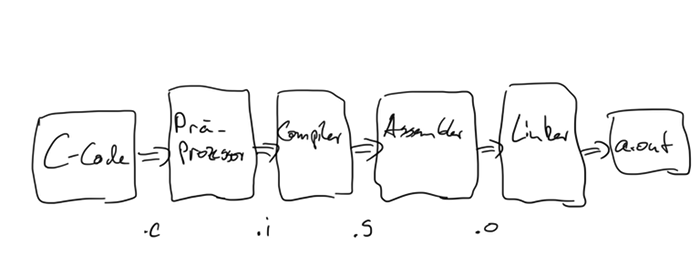 C-Code
Prä-
Prozessor
Compiler
Assembler
Linker
a.out
.c
.i
.s
.o